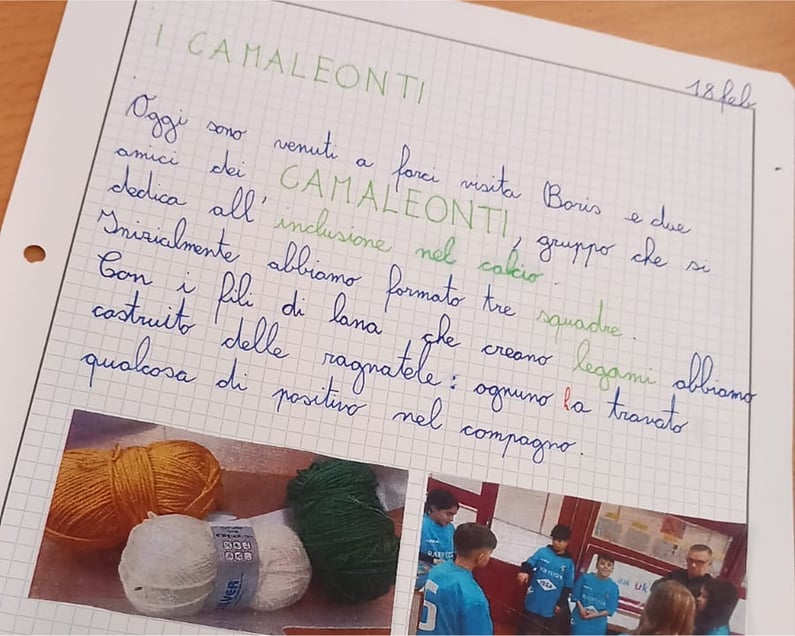 18 feb
I CAMALEONTI
Oggi sono venuti a farci visita Boris e due
amici dei CAMALEONTI, gruppo che si
dedica all'inclusione nel calcio.
Inizialmente abbiamo formato tre squadre.
Con i fili di lana, che creano legami abbiamo
costruito delle ragnatele: ognuno ha trovato
qualcosa di positivo nel compagno.